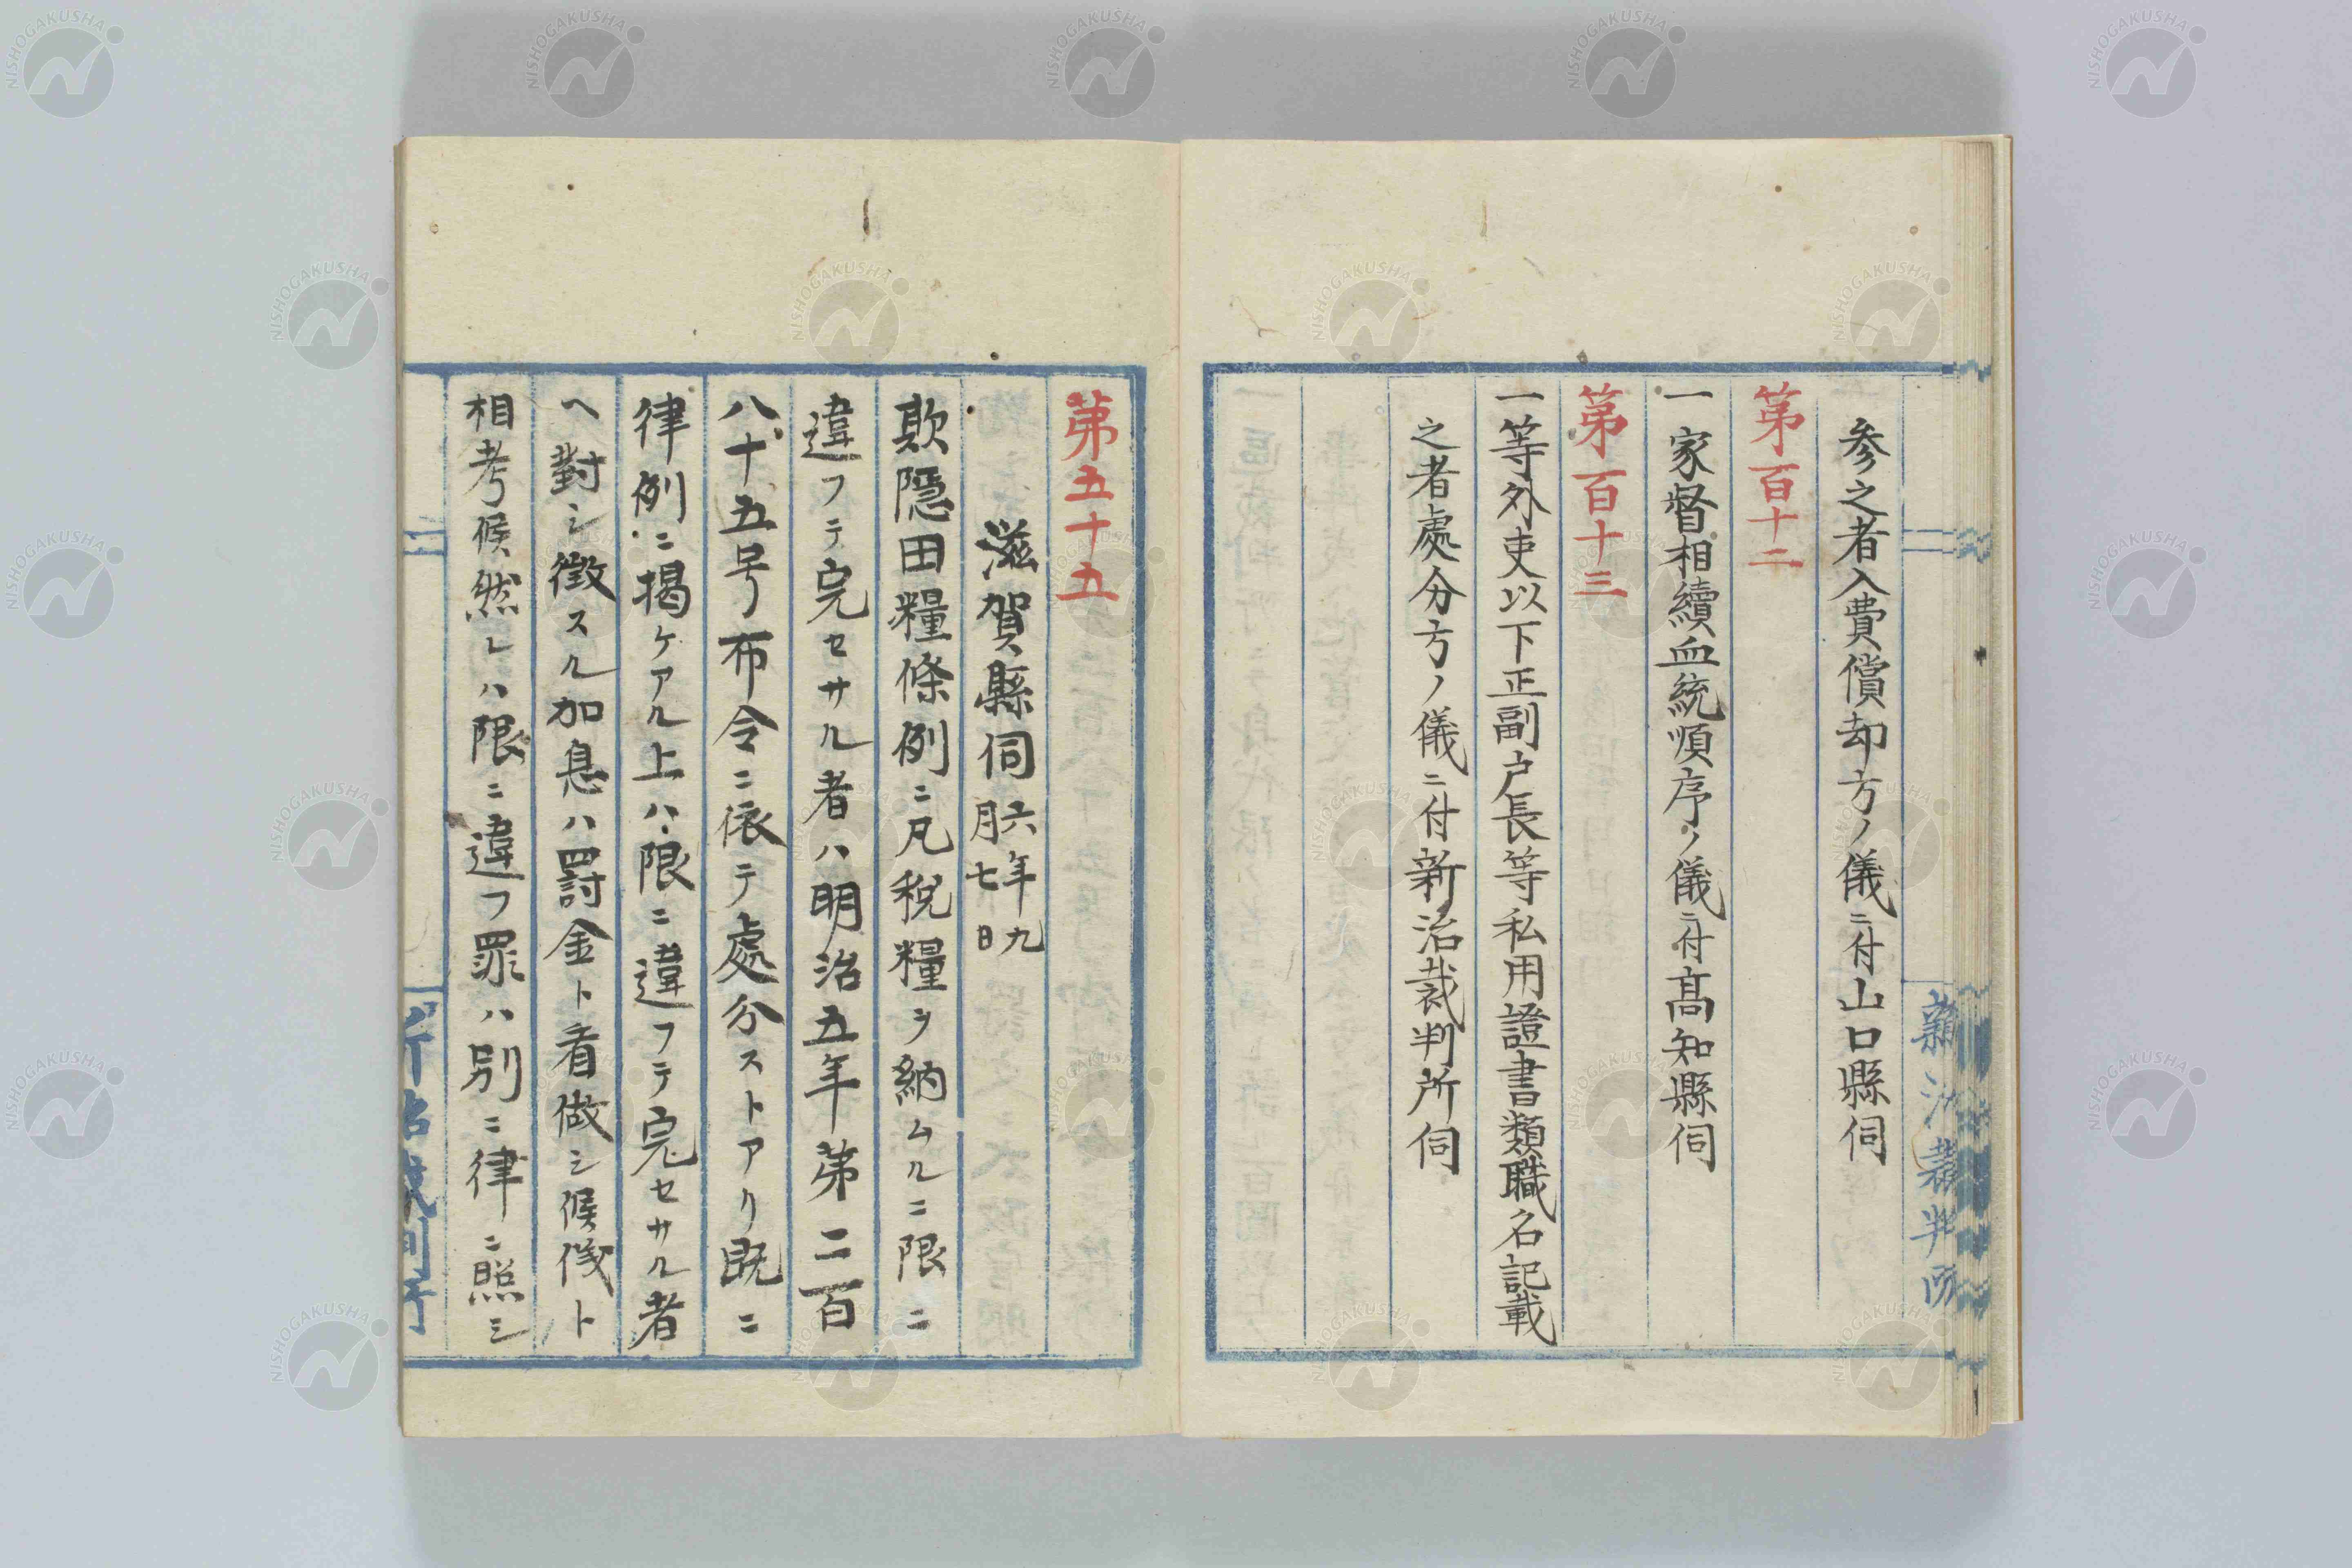 参之者入費償却方ノ儀ニ付山口縣伺
第百十二
一家督相續血統順序ノ儀ニ付髙知縣伺
第百十三
一等外吏以下正副户長等私用證書類職名記載
之者處分方ノ儀ニ付新治裁判所伺
新治裁判所
第五十五
滋賀縣伺 六年九月七日
欺隱田糧條例ニ凡税糧ヲ納ムルニ限ニ
違フテ完セサル者ハ明治五年第二百
八十五号布令ニ依テ處分ストアリ既ニ
律例ニ揭ケアル上ハ限ニ違フテ完セサル者
ヘ對シ徴スル加息ハ罰金ト看做シ候儀ト
相考候然レハ限ニ違フ罪ハ別ニ律ニ照シ
NISHOGAKUSHA